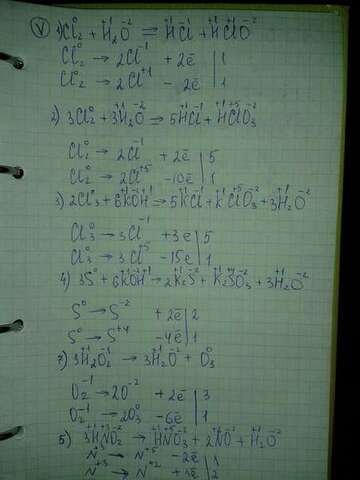 V 1) Cl₂⁰ + H₂⁺¹O⁻² = H⁺¹Cl⁻¹ + H⁺¹Cl⁺¹O⁻²
Cl₂⁰ → 2Cl⁻¹ + 2ē | 1
Cl₂⁰ → 2Cl⁺¹ - 2ē | 1
2) 3Cl₂⁰ + 3H₂⁺¹O⁻² → 5H⁺¹Cl⁻¹ + H⁺¹Cl⁺⁵O₃⁻²
Cl₂⁰ → 2Cl⁻¹ + 2ē | 5
Cl₂⁰ → 2Cl⁺⁵ - 10ē | 1
3) 2Cl₃⁰ + 6K⁺¹O⁻²H⁺¹ → 5K⁺¹Cl⁻¹ + K⁺¹Cl⁺⁵O₃⁻² + 3H₂⁺¹O⁻²
Cl₃⁰ → 3Cl⁻¹ + 3ē | 5
Cl₃⁰ → 3Cl⁺⁵ - 15ē | 1
4) 3S⁰ + 6K⁺¹O⁻²H⁺¹ → 2K₂⁺¹S⁻² + K₂⁺¹S⁺⁴O₃⁻² + 3H₂⁺¹O⁻²
S⁰ → S⁻² + 2ē | 2
S⁰ → S⁺⁴ - 4ē | 1
7) 3H₂⁺¹O₂⁻¹ → 3H₂⁺¹O⁻² + O₃⁰
O₂⁻¹ → 2O⁻² + 2ē | 3
O₂⁻¹ → 2O₃⁰ - 6ē | 1
5) 3H⁺¹N⁺³O₂⁻² → H⁺¹N⁺⁵O₃⁻² + 2N⁺²O⁻² + H₂⁺¹O⁻²
N⁺³ → N⁺⁵ - 2ē | 1
N⁺³ → N⁺² + 1ē | 2